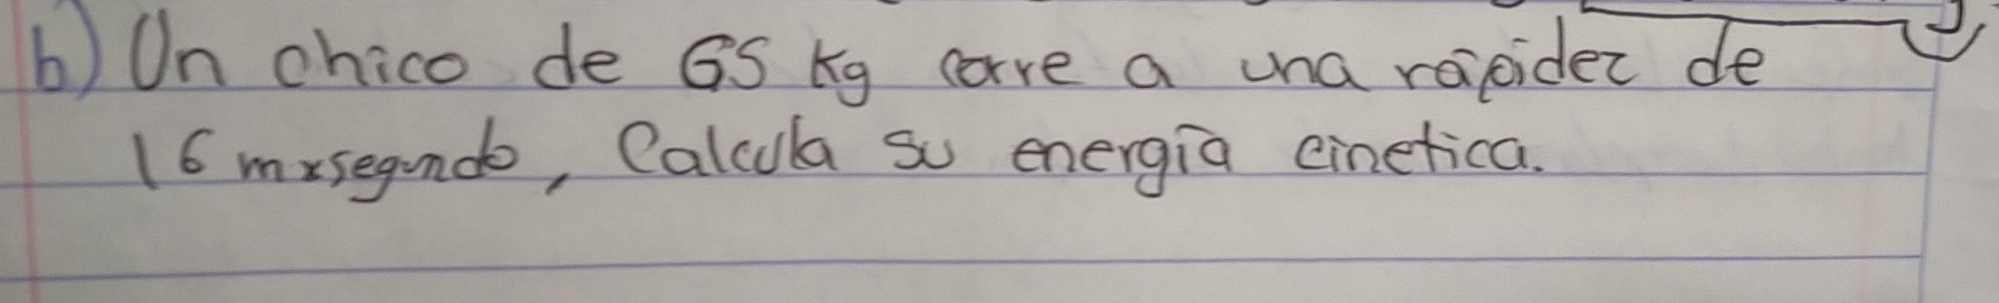 b) Un chico de 65 Kg corre a una rápidez de
16 mxsegundo, Calcula su energía cinetica.